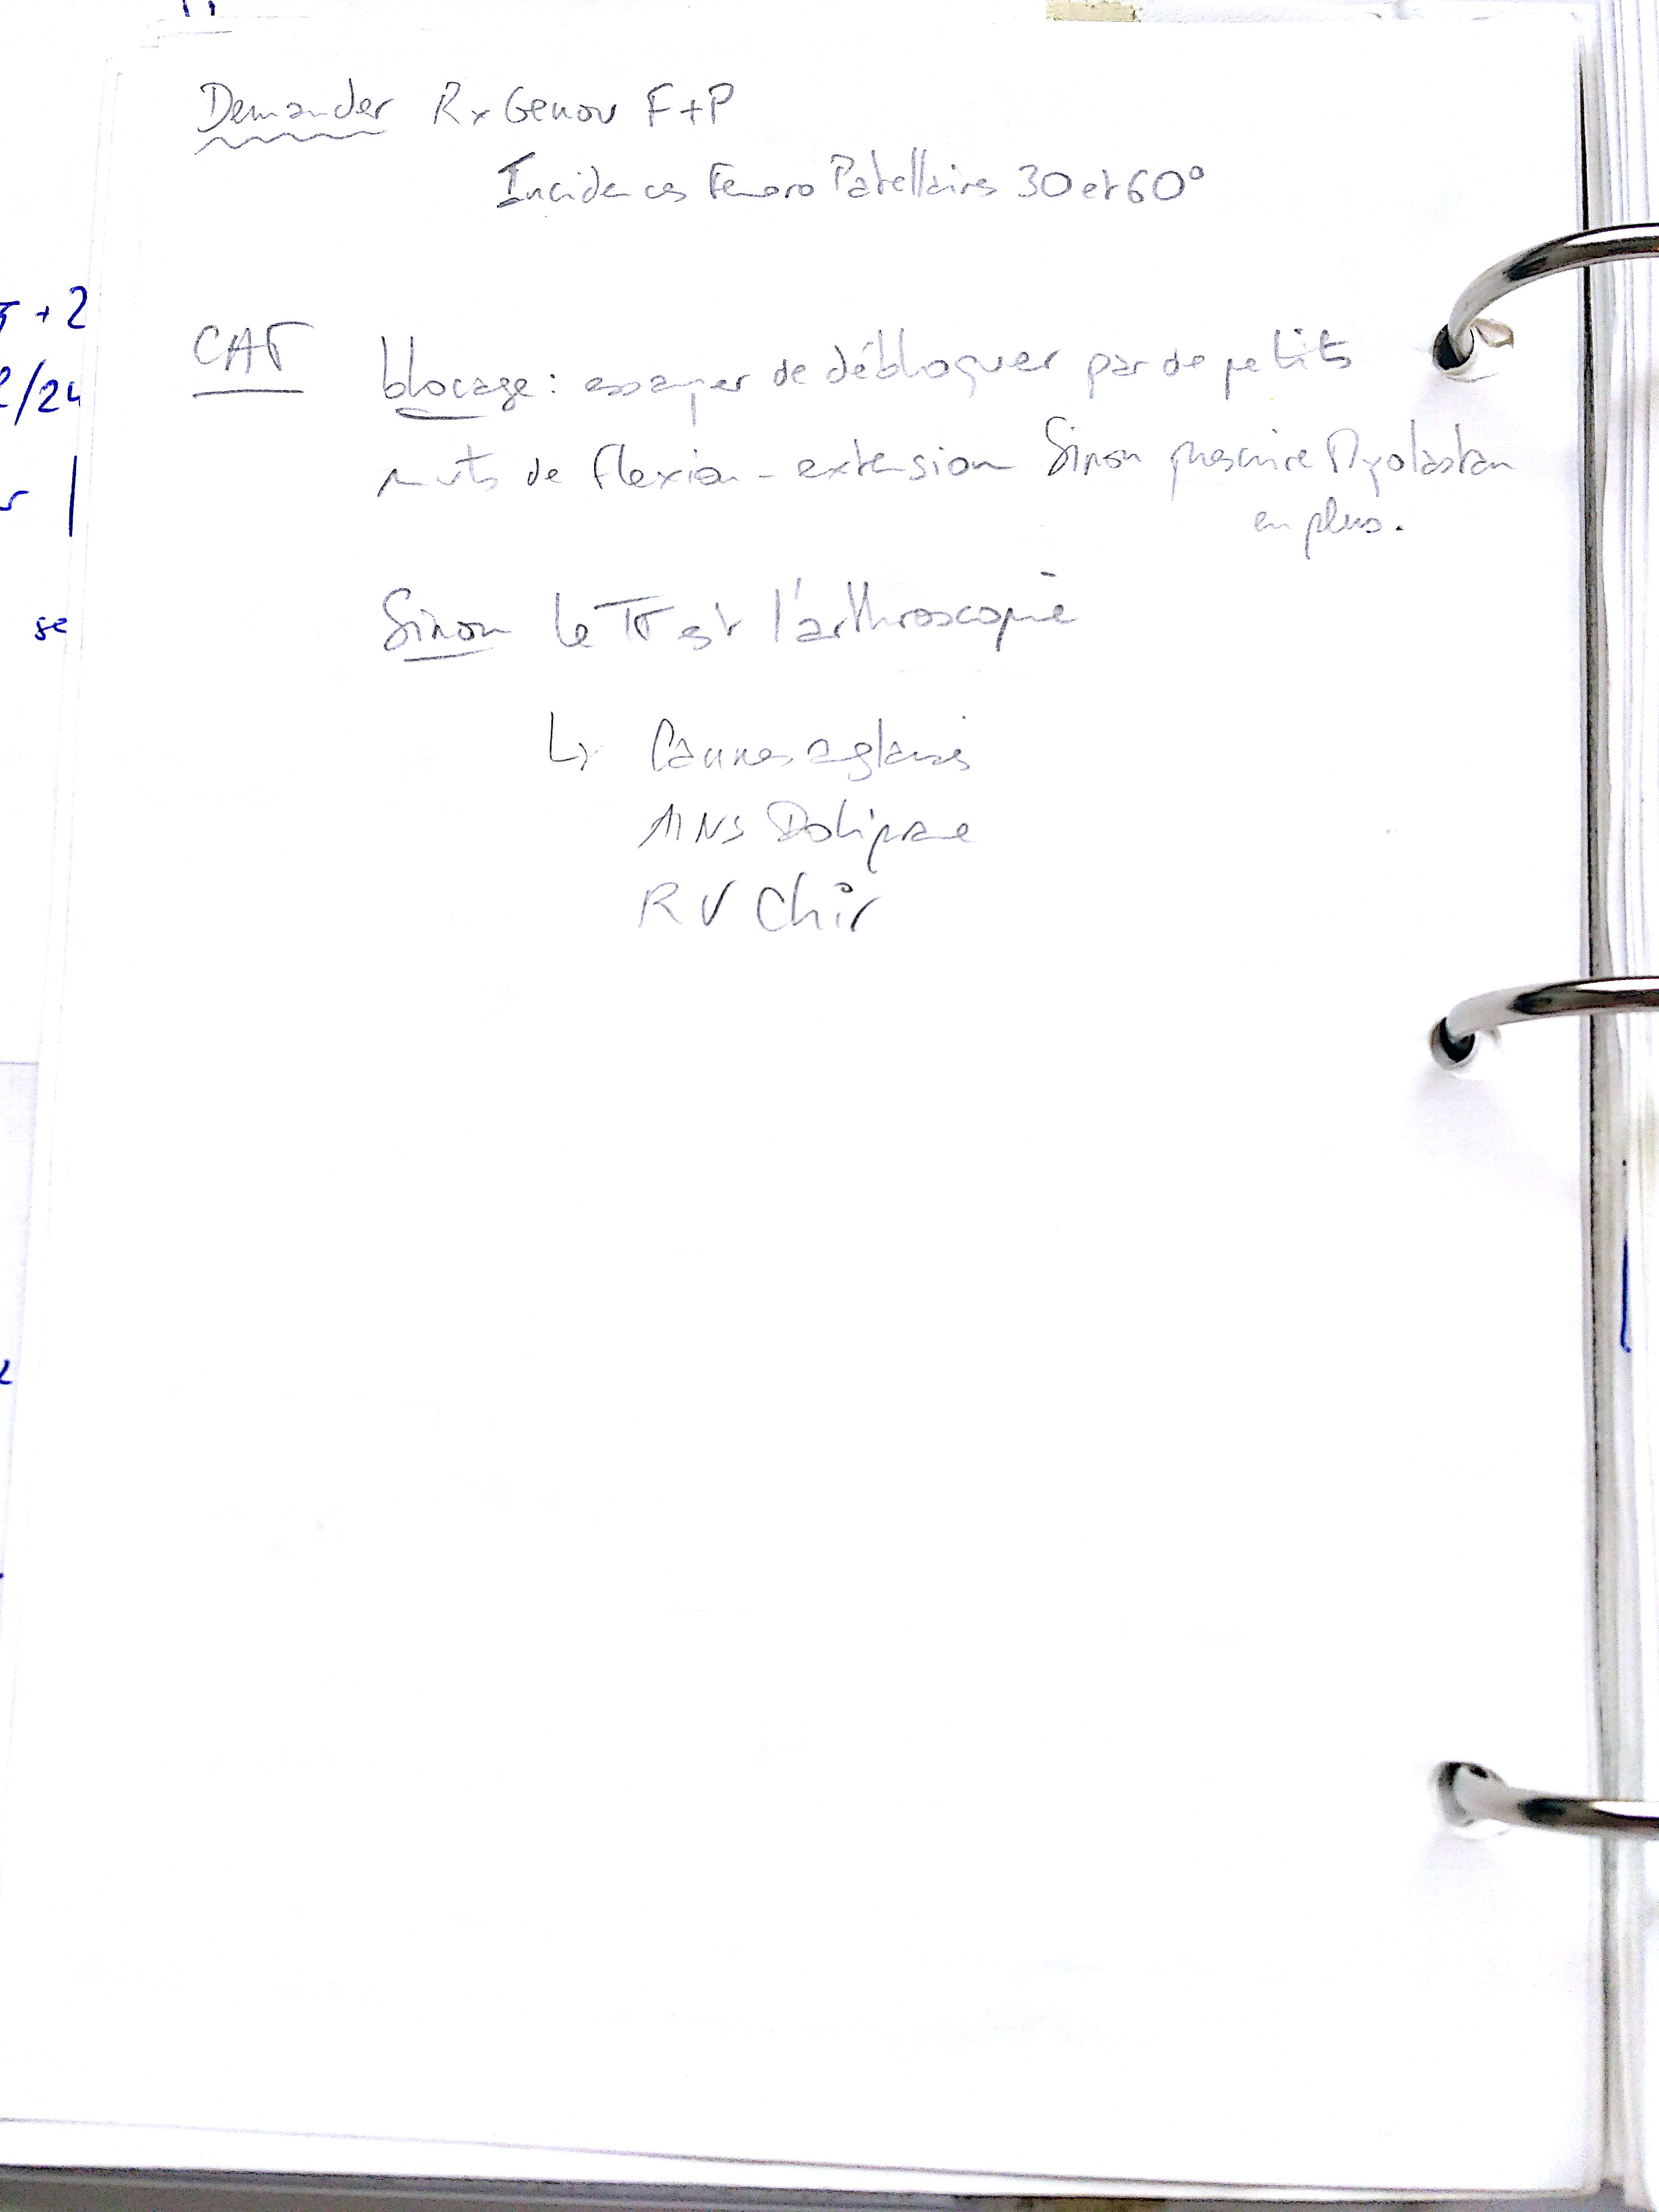 Demander Rx Genou F+P
Incidences Femoro Patellaires 30 et 60°
CAT
blocage : essayer de débloquer par de petits
mvts de flexion - extension Sinon prescrire Myolastan
en plus.
Sinon le TT est l'arthroscopie
↳ Cannes anglaises
AINS Doliprane
RV Chir
+ 2
/24
se